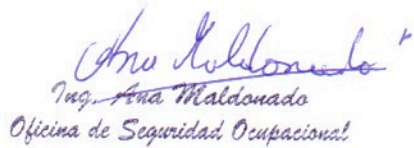 Ana Maldonado
Ing. Ana Maldonado
Oficina de Seguridad Ocupacional